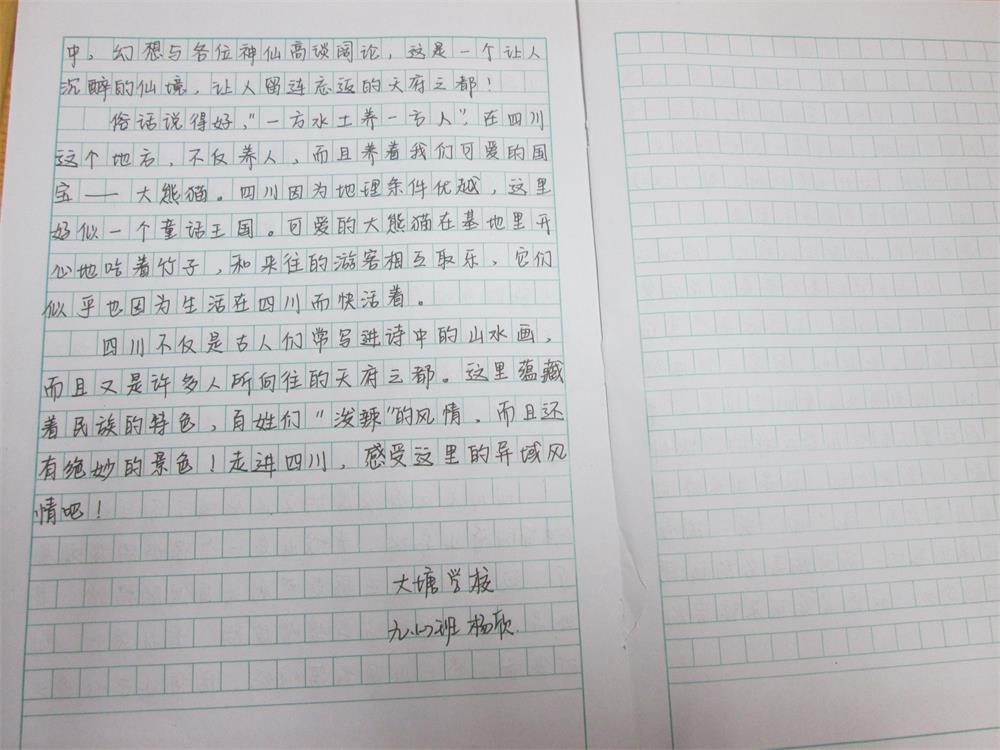 中，幻想与各位神仙高谈阔论，这是一个让人
沉醉的仙境，让人留连忘返的天府之都！
俗话说得好，“一方水土养一方人”，在四川
这个地方，不仅养人，而且养着我们可爱的国
宝——大熊猫。四川因为地理条件优越，这里
好似一个童话王国。可爱的大熊猫在基地里开
心地啃着竹子，和来往的游客相互取乐，它们
似乎也因为生活在四川而快活着。
四川不仅是古人们常写进诗中的山水画，
而且又是许多人所向往的天府之都。这里蕴藏
着民族的特色，百姓们“泼辣”的风情，而且还
有绝妙的景色！走进四川，感受这里的异域风
情吧！
大塘学校
班 杨欣